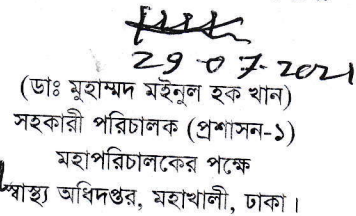 29-07-2021
(ডাঃ মুহাম্মদ মইনুল হক খান)
সহকারী পরিচালক (প্রশাসন-১)
মহাপরিচালকের পক্ষে
স্বাস্থ্য অধিদপ্তর, মহাখালী, ঢাকা।